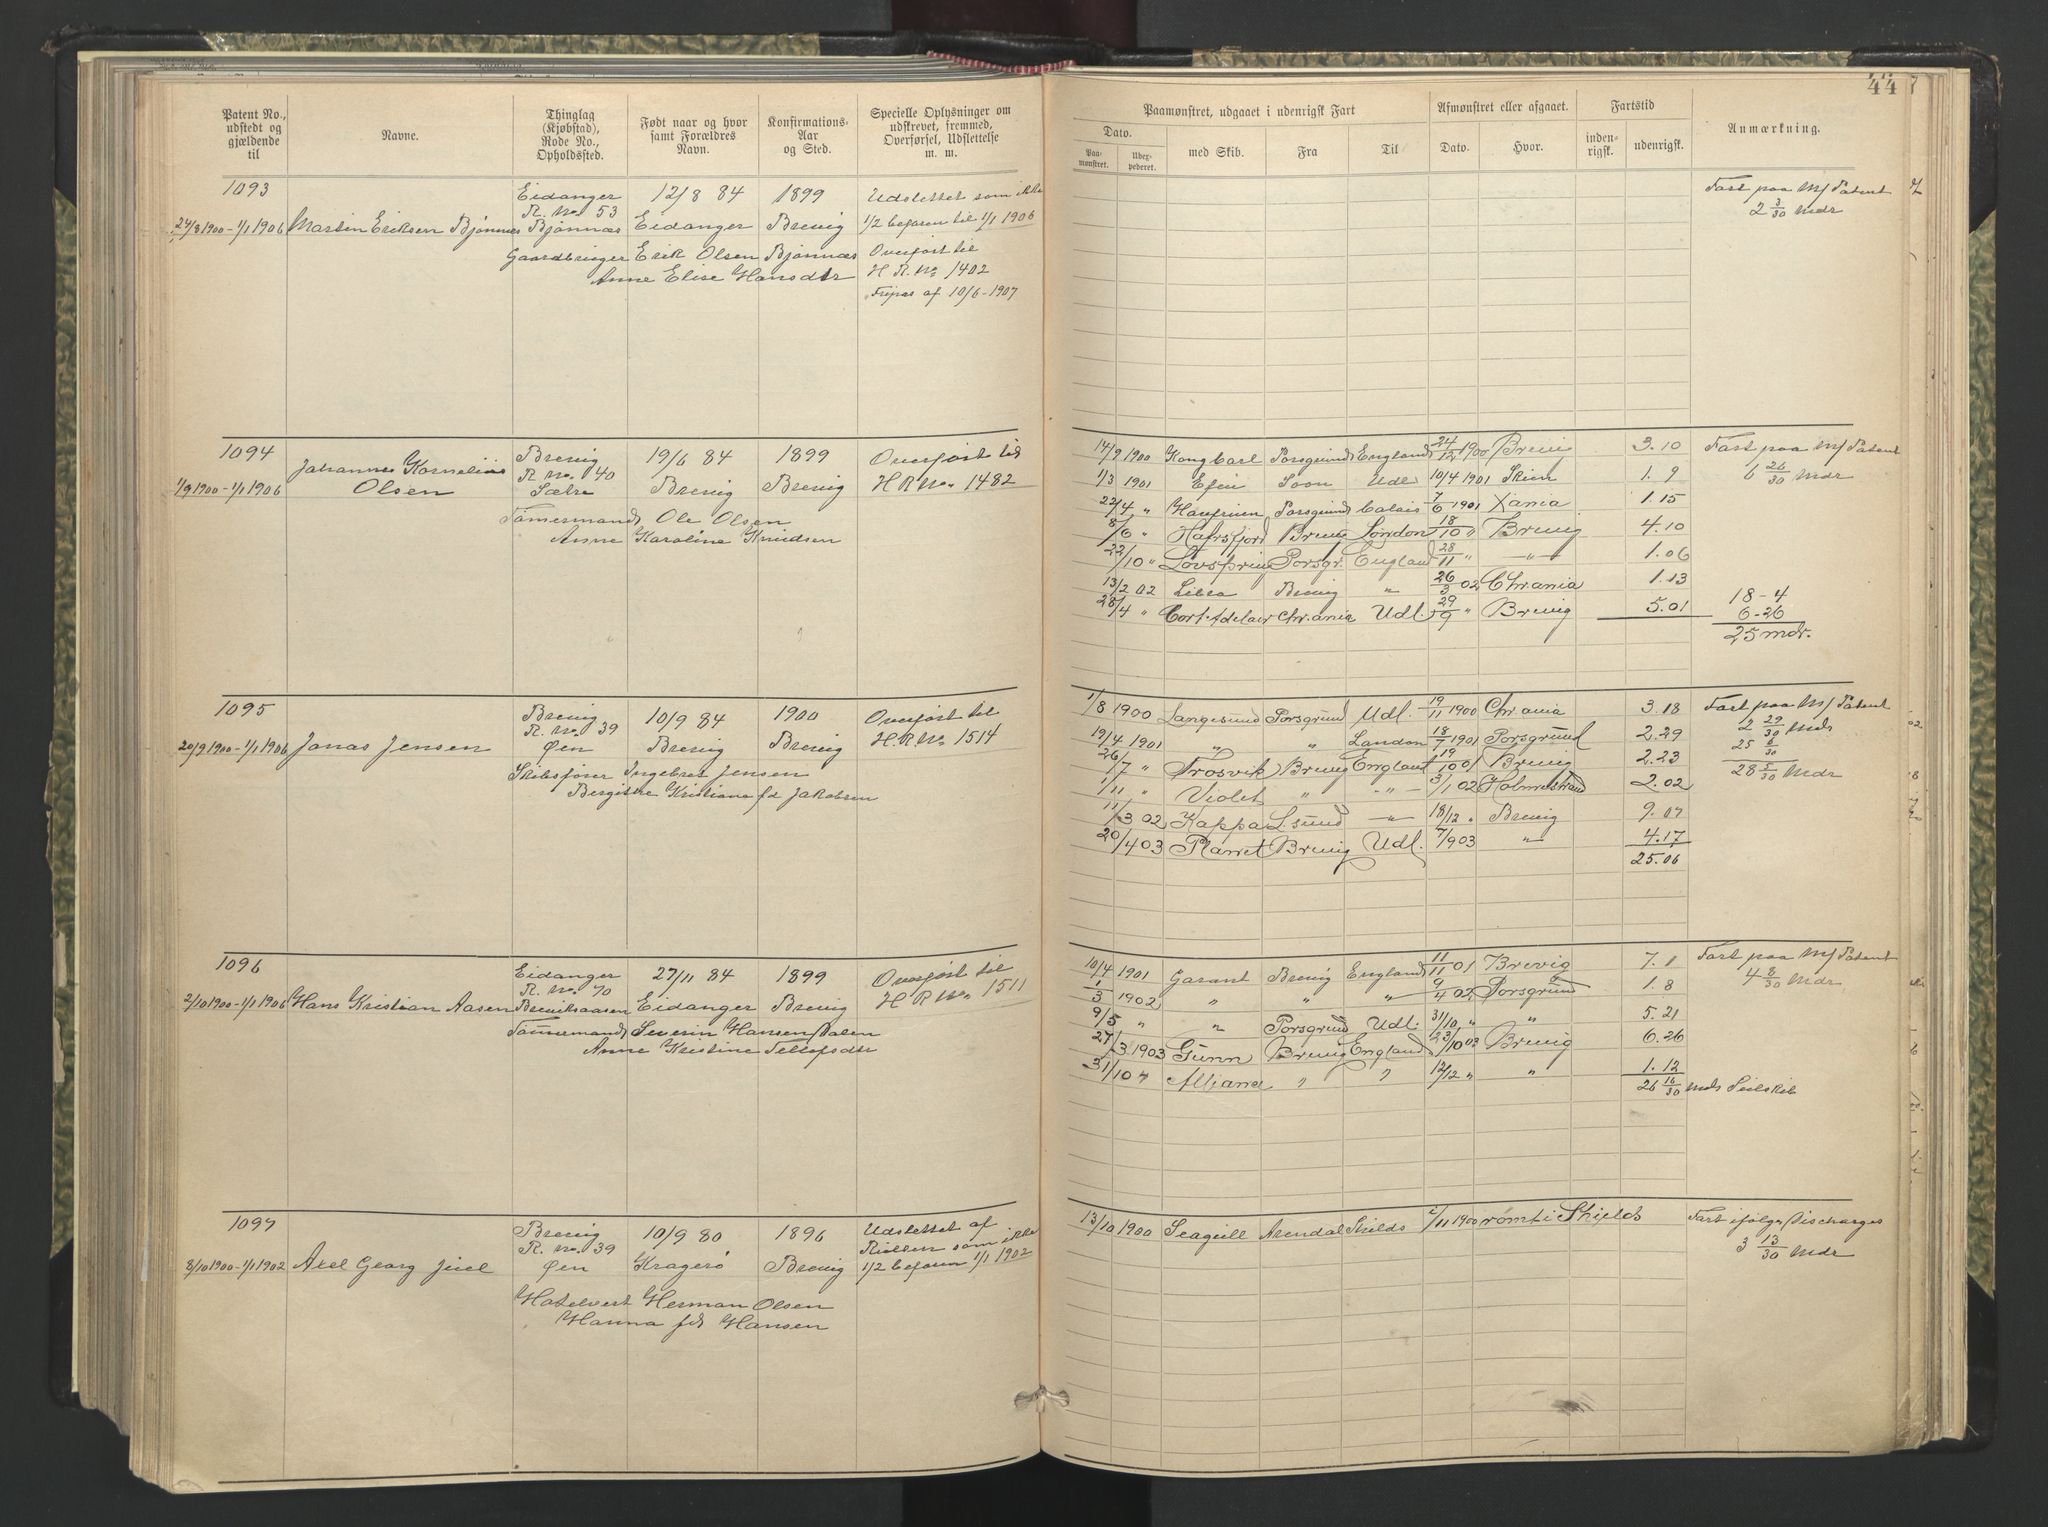 Patent No.,
udstedt og
gjældende
til
Navne.
Thinglag
(Kjøbstad),
Rode No.,
Opholdssted.
Født naar og hvor
samt Forældres
Navn.
Konfirmations-
Aar
og Sted.
Specielle Oplysninger om
udskrevet, fremmed,
Overførsel, Udslettelse
m. m.
1093
24/8 1900-1/1 1906 Martin Eriksen Bjønnes
Eidanger
R. No. 53
Bjønnæs
12/8 84
Eidanger
1899
Brevig
Gaardbruger Erik Olsen Bjønnæs
Anne Elise Hansdtr
Udslettet som ikke
1/2 befaren til 1/1 1906
Overført til
H R. No. 1402
Fripas af 10/6-1907
1094
1/9 1900-1/1 1906
Johannes Kornelius
Olsen
Brevig
R. No. 40
Sætre
19/6 84
Brevig
1899
Brevig
Tømermand Ole Olsen
Anne Karoline Knudsen
Overført til
H R No. 1482
1095
20/9 1900-1/1 1906 Jonas Jensen
Brevig
R. No. 39
Øen
10/9 84
Brevig
1900
Brevig
Skibsfører Ingebret Jensen
Bergitte Kristiana fd Jakobsen
Overført til
H. R No. 1514
1096
2/10 1900-1/1 1906 Hans Kristian Aasen
Eidanger
R. No. 70
Breviksaasen
27/11 84
Eidanger
1899
Brevig
Tømmermand Severin Hansen Dalen
Anne Kristine Tellefsdtr
Overført til
H R No. 1511
1097
8/10 1900-1/1 1902 Axel Georg Juel
Brevig
R. No. 39
Øen
10/9 80
Kragerø
1896
Brevig
Hotelvert Herman Olsen
Hanna fd Hansen
Udslettet af
Rullen som ikke
1/2 befaren 1/1 1902
447
Paamønstret, udgaaet i udenrigsk Fart
Afmønstret eller afgaaet.
Fartstid
Anmærkning.
Dato.
Paa-
mønstret.
Udex-
pederet.
med Skib.
Fra
Til
Dato.
Hvor.
inden-
rigsk.
udenrigsk.
Fart paa M/ Patent
2 3/30 Mdr
14/9 1900 Kong Carl Porsgrund England 24/12 1900 Brevig 3.10 Fart paa M/ Patent
1/3 1901 Efeu Soon Udl 10/4 1901 Skien 1. 9 6 26/30 Mdr
22/4 " Havfruen Porsgrund Calais 7/6 1901 Xania 1.15
8/6 " Hafrsfjord Brevig London 18/10 " Brevig 4.10
22/10 " Løvspring Porsgr. England 28/11 " —"— 1.06
13/2 02 Libra Brevig " 26/3 02 Chr.ania 1.13
28/4 " Cort Adelaer Chr.ania Udl. 29/9 " Brevig 5.01
18-4
6-26
25 mdr.
1/8 1900 Langesund Porsgrund Udl. 19/11 1900 Chr.ania 3.18 Fart paa M/ Patent
19/4 1901 " " London 18/7 1901 Porsgrund 2.29 2 29/30 Mds
26/7 " Frosvik Brevig England 19/10 01 Brevig 2.23 25 6/30
1/11 " Violet " —"— 3/1 02 Holmestrand 2.02 28 5/30 Mdr
11/3 02 Kappa L.sund —"— 18/12 " Brevig 9.07
20/4 03 Planet Brevig Udl. 7/9 03 " 4.17
25.06
10/4 1901 Garant Brevig England 11/11 01 Brevig 7.1 Fart paa M/ Patent
1/3 1902 " " " 9/4 02 Porsgrund 1. 8 4 8/30 Mdr
9/5 " " Porsgrund Udl. 31/10 " " 5.21
27/3 1903 Gunn Brevig England 23/10 03 Brevig 6.26
31/10 " Alliance " " 12/12 " " 1.12
26 16/30 mds Seilskib
13/10 1900 Seagull Arendal Shields 2/11 1900 rømt i Shields Fart ifølge Discharges
3 13/30 Mdr